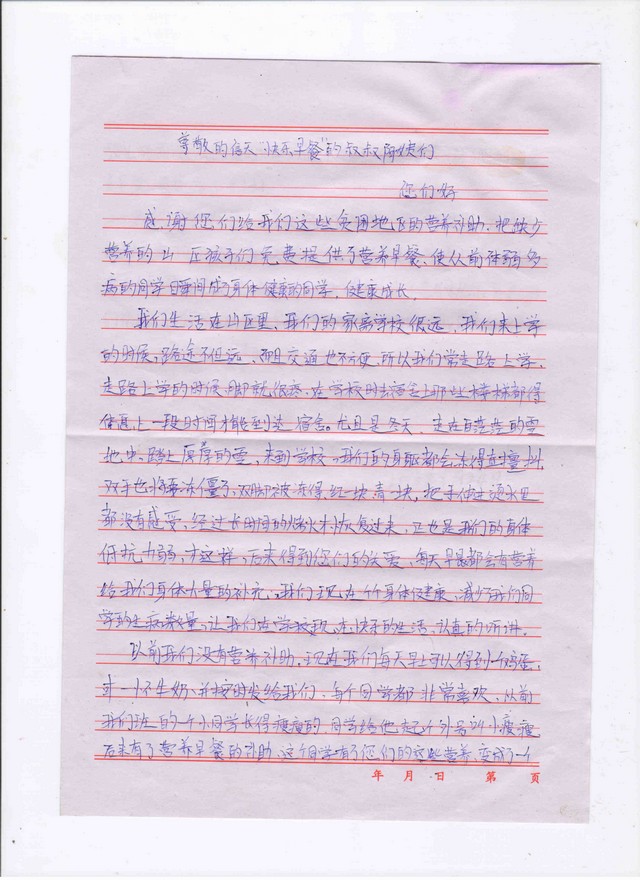 尊敬的信天“快乐早餐”的叔叔阿姨们
您们好
感谢您们给我们这些贫困地区的营养补助.把缺少
营养的山区孩子们免费提供了营养早餐.使从前体弱多
病的同学日瞬间成了身体健康的同学,健康成长.
我们生活在山区里,我们的家离学校很远,我们来上学
的时候,路途不但远,而且交通也不便,所以我们常走路上学,
走路上学的时候,脚就很疼.在学校时去宿舍上那些楼梯都得
休息上一段时间才能到达宿舍。尤且是冬天,走在白茫茫的雪
地中,踏上厚厚的雪,来到学校,我们的身躯都会冻得直
双手也将要冻僵了,双脚被冻得红一块青一块,把手伸进烫水里
都没有感受,经过长时间的烤火才恢复过来,正也是我们的身体
低抗力弱,才这样,后来得到您们的关爱,每天早晨都会有营养
给我们身体大量的补充,我们现在个个身体健康,减少我们同
学的生病数量,让我们在学校快乐的生活,认真的听讲.
以前我们没有营养补助,现在我们每天早上可以得到一个鸡蛋,
或一个杯牛奶,并按时发给我们,每个同学都非常喜欢,从前
我们班的一个小同学长得瘦瘦的,同学给他起个外号叫小瘦瘦
后来有了营养早餐的补助,这个同学有了您们的这些营养,变成了一个
年 月 日 第 页